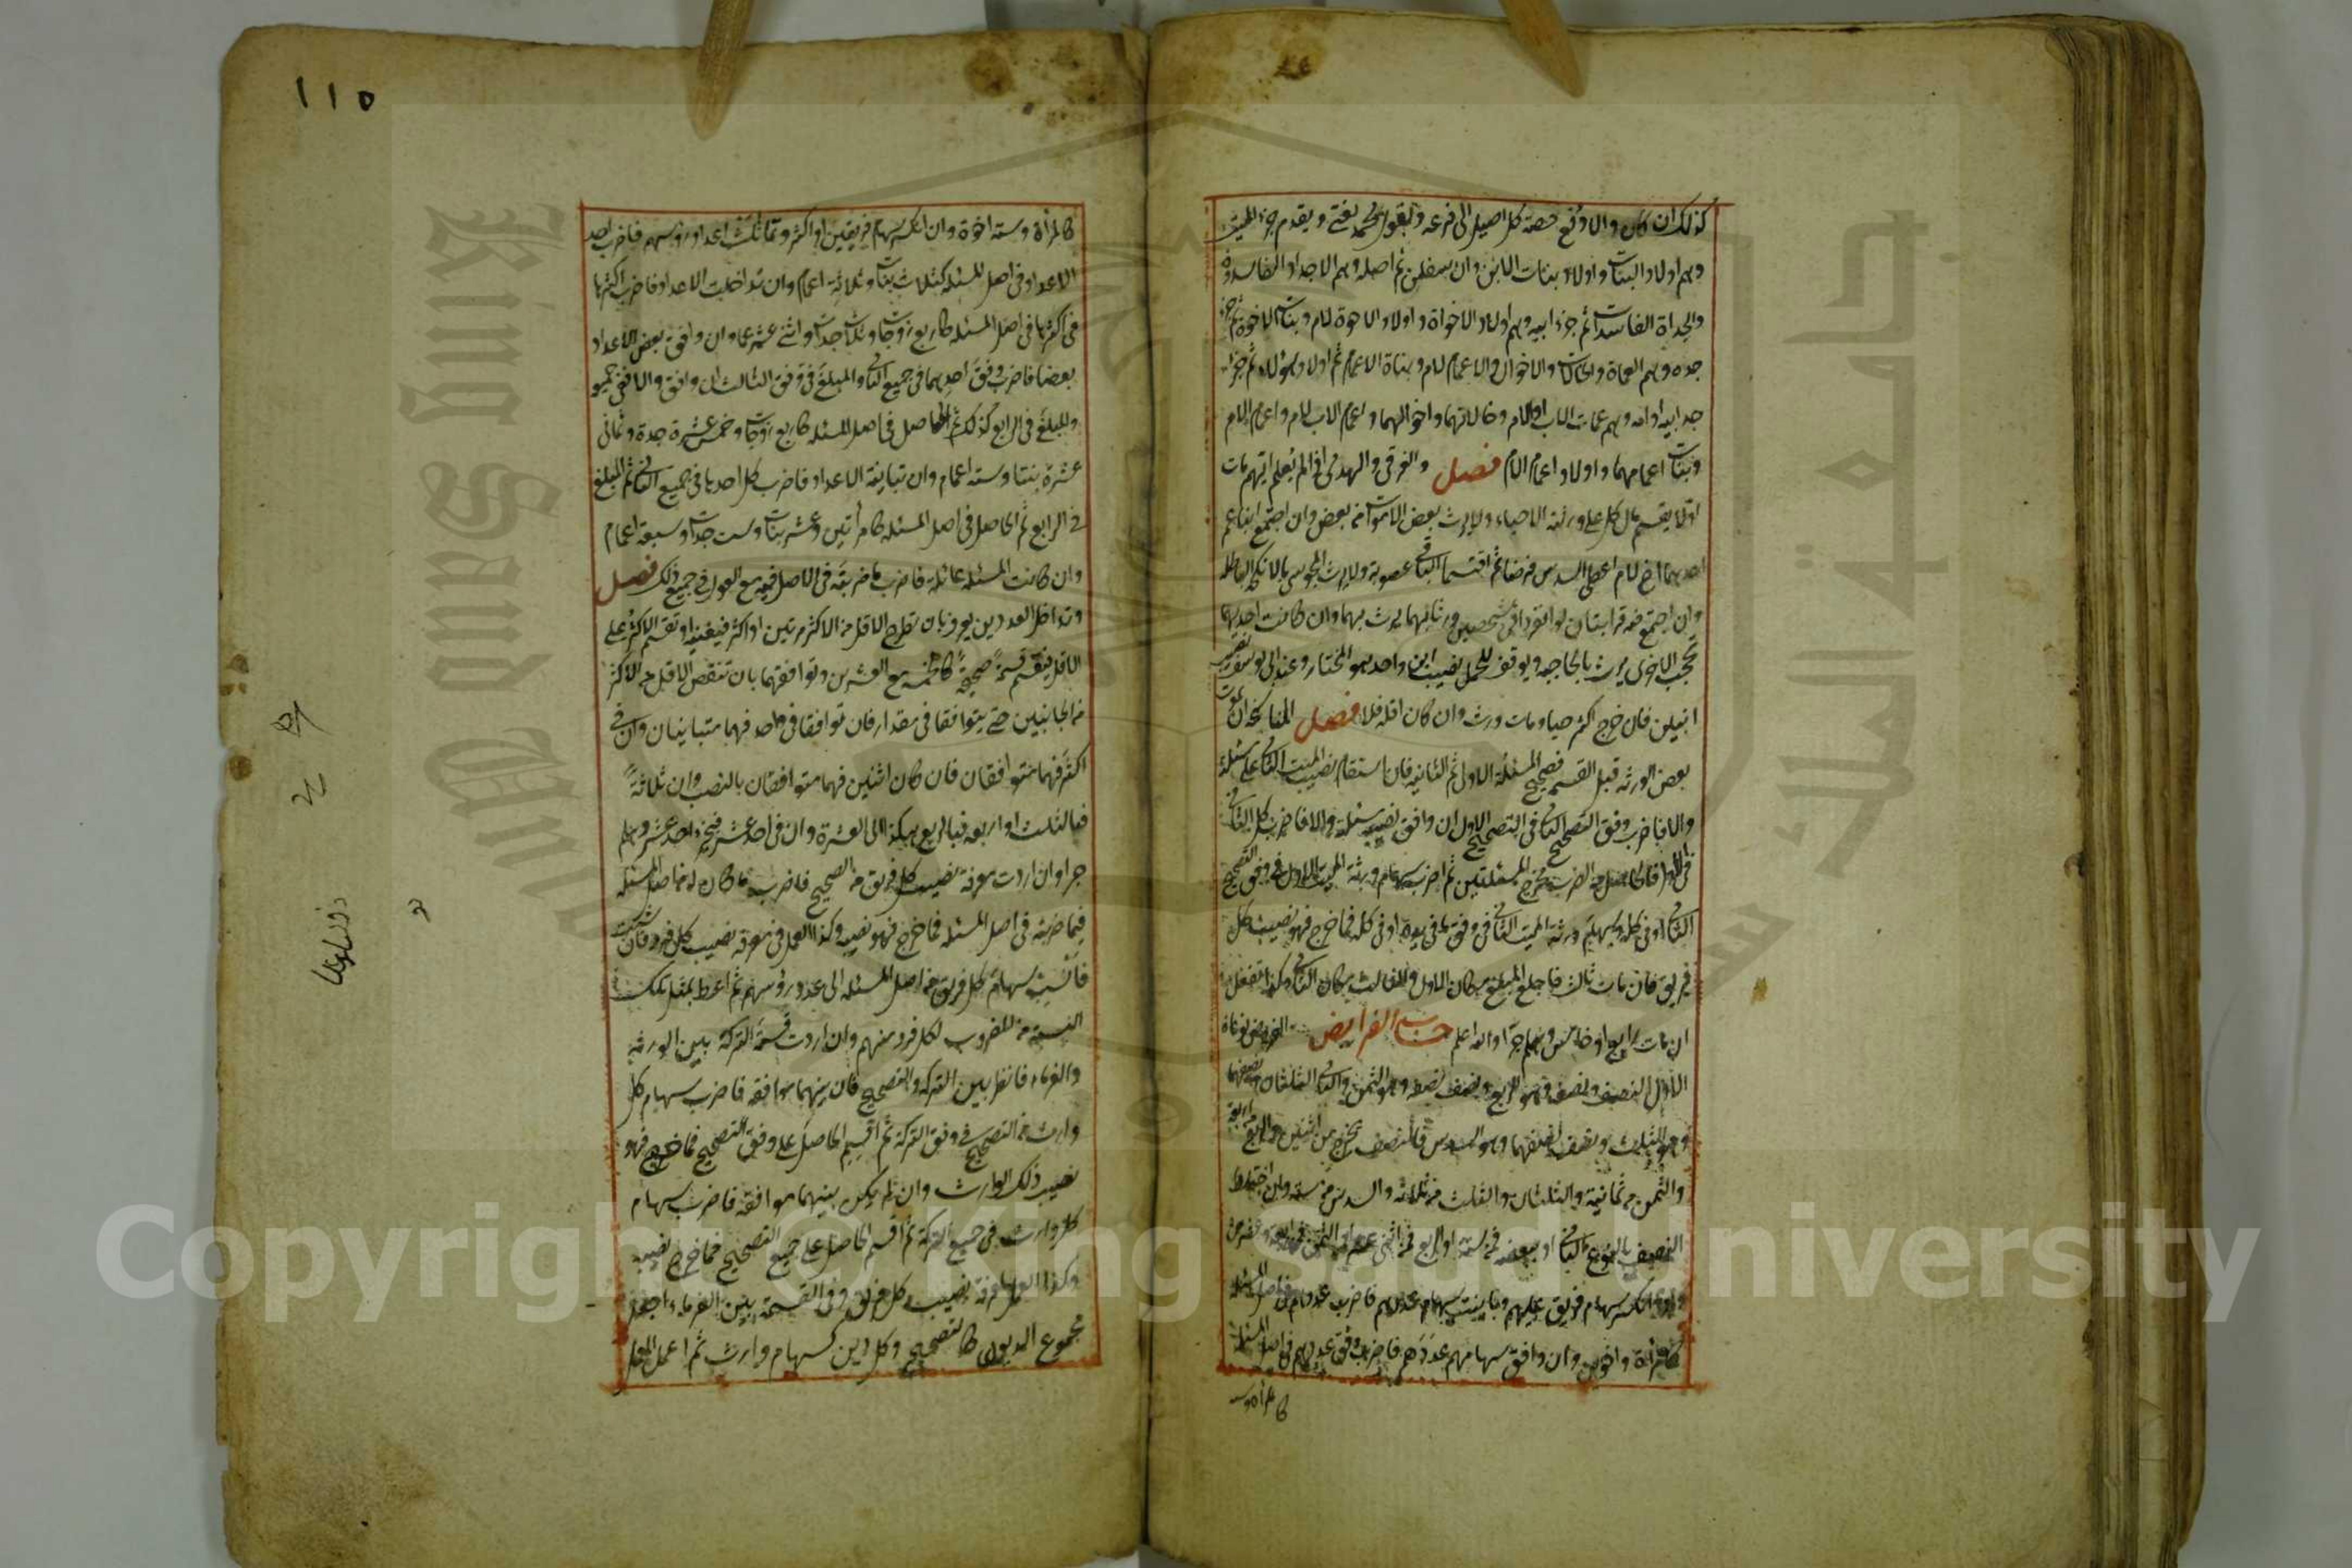 كذلك ان كان والا دفع حصة كل اصيل الى فرعه وبقول محمد يفتى ويقدم جزء الميت
وهم اولاد البنات واولاد بنات الابن وان سفلن ثم اصله وهم الاجداد الفاسدون
والجداة الفاسدات ثم جزء ابيه وهم اولاد الاخواة واولاد الاخوة لام وبنات الاخوة ثم جزء
جده وهم العماة والخالات والاخوال والاعمام لام وبناة الاعمام ثم اولاد هؤلاء ثم جزء
جد ابيه او امه وهم عمات الاب او الام وخالاتهما واخوالهما واعمام الاب لام واعمام الام
وبنات اعمامهما واولاد اعمام الام فصل والغرقى والهدمى اذا لم يعلم ايهم مات
اولا يقسم مال كل على ورثته الاحياء ولا يرث بعض الاموات من بعض وان اجتمع ابنا عم
احدهما اخ لام اعطى السدس فرضا ثم اقتسما الباقى عصوبة ولا يرث المجوسى بالانكحة الباطلة
وان اجتمع فيه قرابتان لو انفردا فى شخصين ورثا بهما يرث بهما وان كانت احديهما
تحجب الاخرى يرث بالحاجبه ويوقف للحمل نصيب ابن واحد هو المختار وعند ابى يوسف نصيب
ابنين فان خرج اكثره حيا ومات ورث وان كان اقله فلا فصل المناسخة ان يموت
بعض الورثه قبل القسمه فصحح المسئلة الاولى ثم الثانيه فان استقام نصيب الميت الثانى على مسئلته
والا فاضرب وفق التصحيح الثانى فى التصحيح الاول ان وافق نصيبه مسئلته والا فاضرب كل الثانى
فى الاول فالحاصل من الضرب مخرج المسئلتين ثم اضرب سهام ورثة الميت الاول فى وفق التصحيح
الثانى او فى كله وسهام ورثة الميت الثانى فى وفق ما فى يده او فى كله فما خرج فهو نصيب كل
فريق فان مات ثالث فاجعل المبلغ مكان الاول والثالث مكان الثانى وكذا تفعل
ان مات رابع او خامس وهلم جرا والله اعلم حساب الفرايض الفروض نوعان
الاول النصف ونصفه وهو الربع ونصف نصفه وهو الثمن والثانى الثلثان ونصفهما
وهو الثلث ونصف نصفهما وهو السدس فالنصف يخرج من اثنين والربع من اربعة
والثمن من ثمانية والثلثان والثلث من ثلاثه والسدس من سته وان اختلط
النصف بالنوع الثانى او ببعضه فمن ستة او الربع فمن اثنى عشر او الثمن فمن اربعة وعشرين
واذا انكسر سهام فريق عليهم وباينت سهامهم عددهم فاضرب عددهم فى اصل المسئلة
كامرأة واخوين وان وافق سهامهم عددهم فاضرب وفق عددهم فى اصل المسئلة
كامرأة وسته
١١٥
كامرأة وسته اخوة وان انكسر سهام فريقين او اكثر وتماثلت اعداد رؤسهم فاضرب احد
الاعداد فى اصل المسئله كثلاث بنات وثلاثة اعمام وان تداخلت الاعداد فاضرب اكثرها
فى اكثرها فى اصل المسئله كاربع زوجات وثلث جدات واثنى عشر عما وان وافق بعض الاعداد
بعضا فاضرب وفق احدهما فى جميع الثانى والمبلغ فى وفق الثالث ان وافق والا ففى جميعه
والمبلغ فى الرابع كذلك ثم الحاصل فى اصل المسئله كاربع زوجات وخمس عشرة جدة وثمانى
عشرة بنتا وسته اعمام وان تباينة الاعداد فاضرب كل احدها فى جميع الثانى ثم المبلغ
فى الرابع ثم الحاصل فى اصل المسئله كامرأتين وعشر بنات وست جدات وسبعة اعمام
وان كانت المسئله عائلة فاضرب ما ضربته فى الاصل فيه مع العول فى جميع ذلك فصل
وتداخل العددين يعرف بان تطرح الاقل من الاكثر مرتين او اكثر فيفنيه او تقسم الاكثر على
الاقل فينقسم قسمة صحيحة كالخمسة مع العشرين وتوافقهما بان تنقص الاقل من الاكثر
من الجانبين حتى يتوافقا فى مقدار فان توافقا فى واحد فهما متباينان وان فى
اكثر فهما متوافقان فان كان اثنين فهما متوافقان بالنصف وان ثلاثة
فبالثلث او اربعه فبالربع هكذا الى العشرة وان فى احد عشر فبجزء احد عشر وهلم
جرا وان اردت معرفة نصيب كل فريق من الصحيح فاضرب ما كان له من اصل المسئله
فيما ضربته فى اصل المسئله فما خرج فهو نصيبه وكذا العمل فى معرفة نصيب كل فرد وان شئت
فانسب سهام كل فريق من اصل المسئله الى عدد رؤسهم ثم اعط بمثل تلك
النسبة من المضروب لكل فرد منهم وان اردت قسمة التركة بين الورثه
والغرماء فانظر بين التركه والتصحيح فان بينهما موافقه فاضرب سهام كل
وارث من التصحيح فى وفق التركة ثم اقسم الحاصل على وفق التصحيح فما خرج فهو
نصيب ذلك الوارث وان لم يكن بينهما موافقة فاضرب سهام
كل وارث فى جميع التركة ثم اقسم الحاصل على جميع التصحيح فما خرج نصيبه
وكذا العمل لمعرفة نصيب كل فريق وفى القسمة بين الغرماء اجعل
مجموع الديون كالتصحيح وكل دين كسهام وارث ثم اعمل العمل
Copyright © King Saud University
King Saud University
جامعة الملك سعود